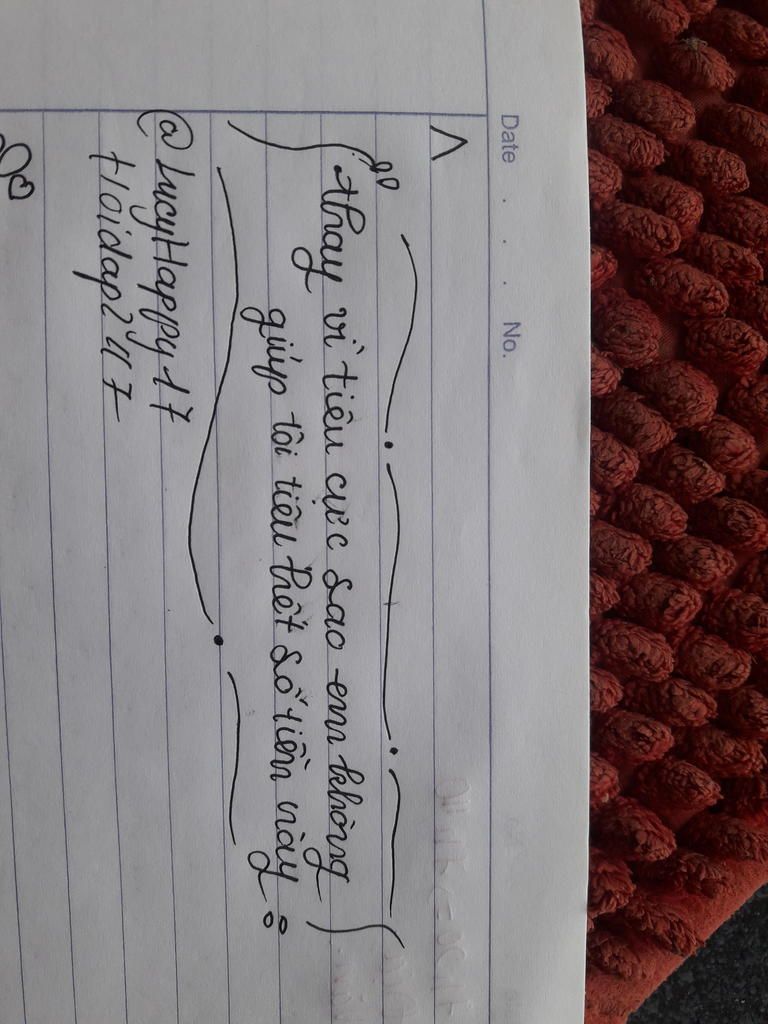 Date . . . No.
thay vì tiêu cực sao em không
giúp tôi tiêu hết số tiền này
@LucyHappy17
Hoidap247